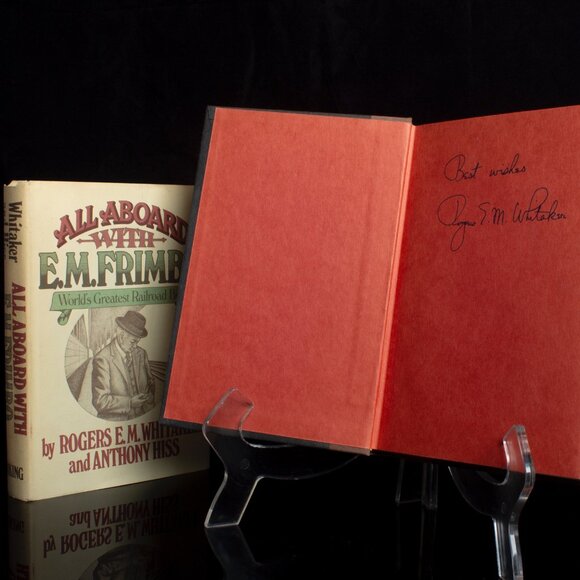 Whitaker
ALL ABOARD WITH
ALL ABOARD
WITH
E.M. FRIMB
World's Greatest Railroad
by ROGERS E. M. WHITAKE
and ANTHONY HISS
Best wishes
Rogers E.M. Whitaker